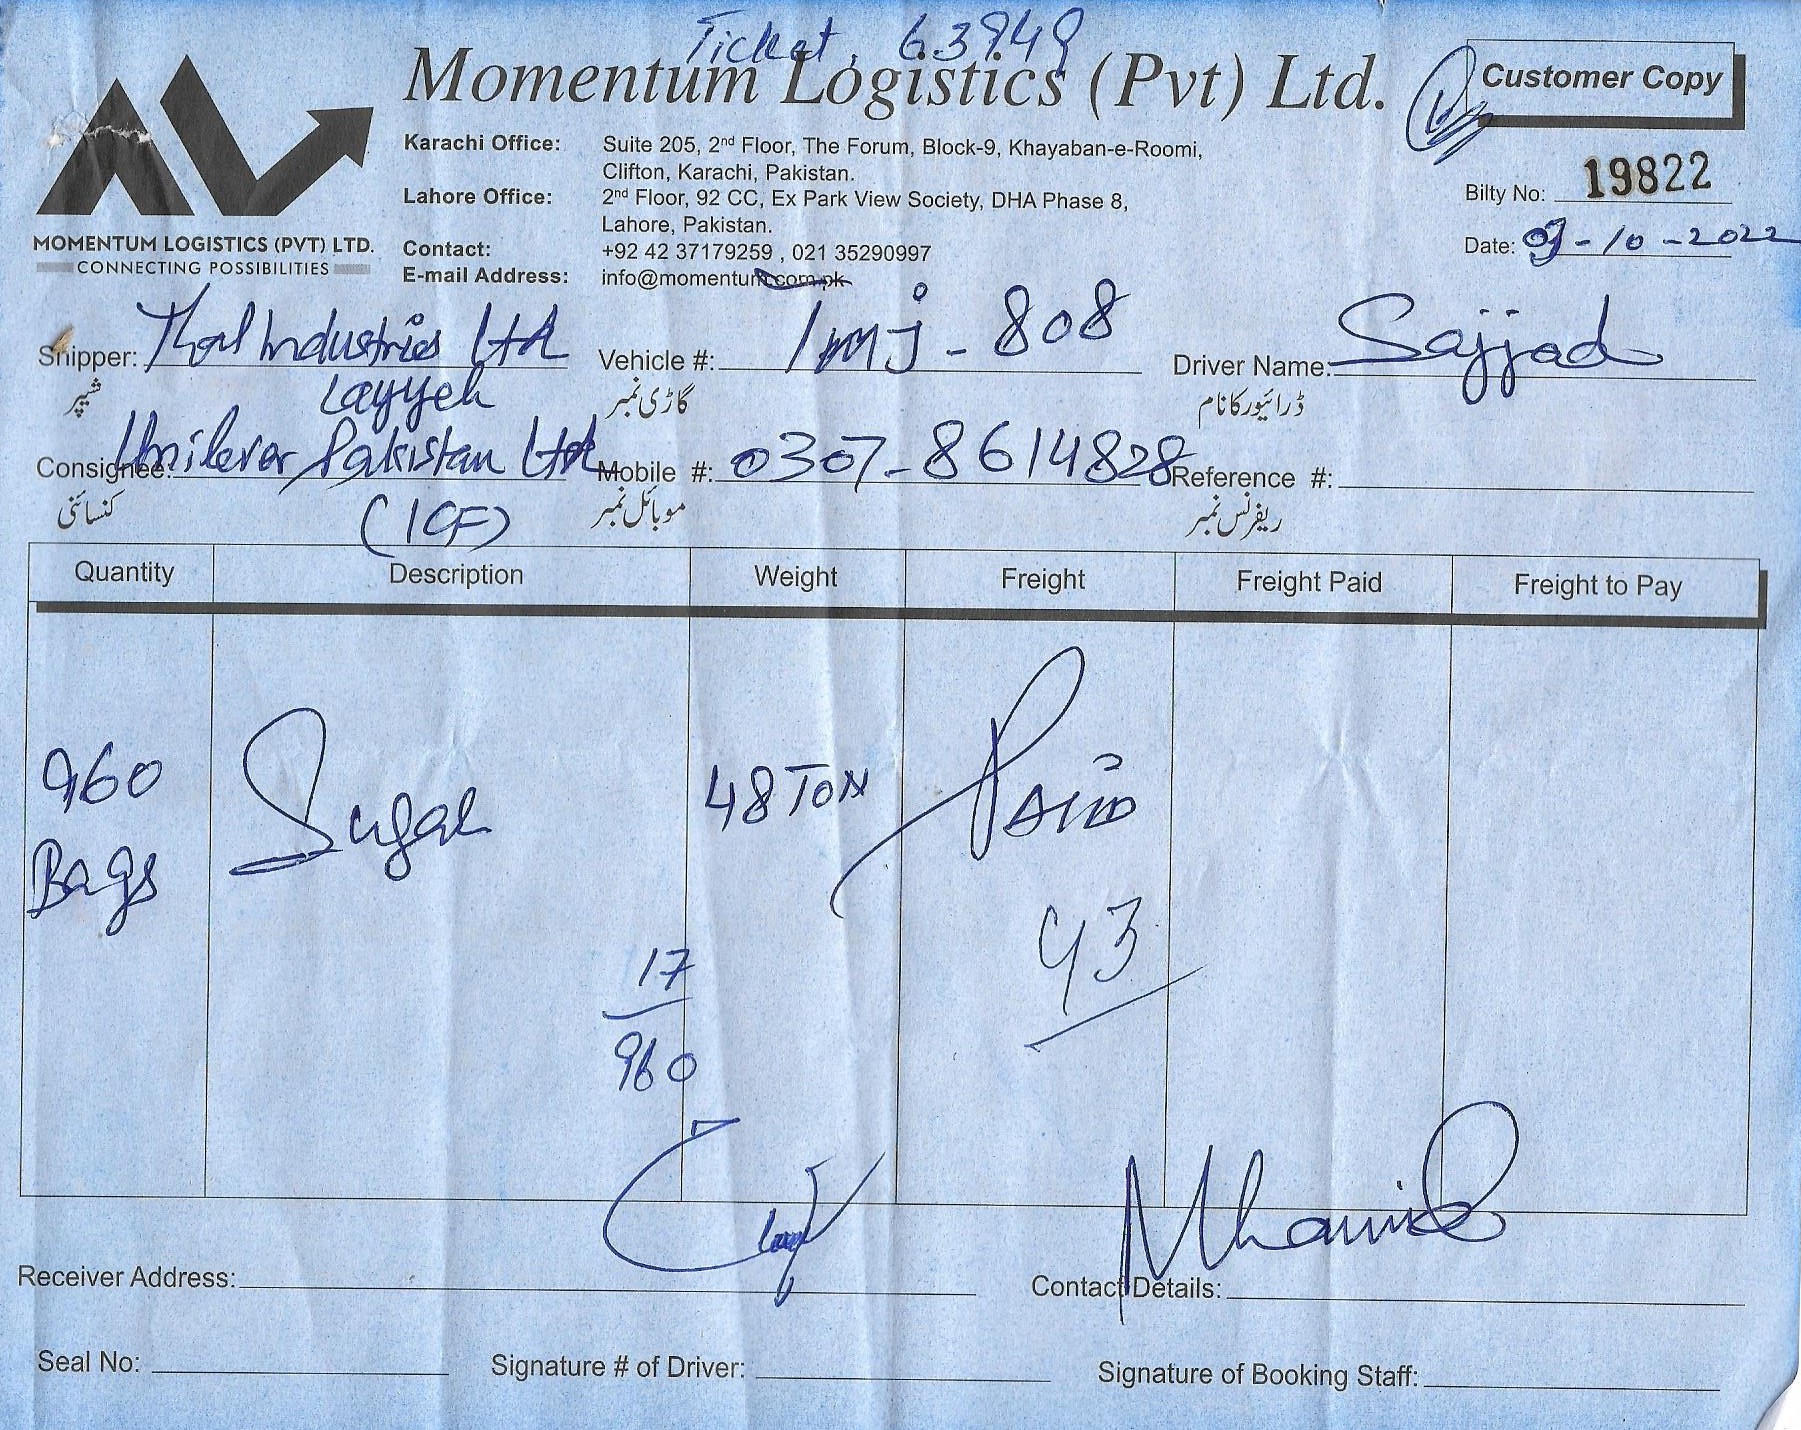 Ticket. 63949
Momentum Logistics (Pvt) Ltd.
Customer Copy
MOMENTUM LOGISTICS (PVT) LTD.
CONNECTING POSSIBILITIES
Karachi Office: Suite 205, 2nd Floor, The Forum, Block-9, Khayaban-e-Roomi,
Clifton, Karachi, Pakistan.
Lahore Office: 2nd Floor, 92 CC, Ex Park View Society, DHA Phase 8,
Lahore, Pakistan.
Contact: +92 42 37179259 , 021 35290997
E-mail Address: info@momentum.com.pk
Bilty No: 19822
Date: 03-10-2022
Shipper: Thal Industries Ltd Vehicle #: Tmj-808 Driver Name: Sajjad
شیپر Layyeh گاڑی نمبر ڈرائیور کا نام
Consignee: Unilever Pakistan Ltd Mobile #: 0307-8614828 Reference #:
کنسائنی (ICF) موبائل نمبر ریفرنس نمبر
Quantity Description Weight Freight Freight Paid Freight to Pay
960 Sugar 48 TON PAID
Bags
17 43
960
Receiver Address: Contact Details:
Seal No: Signature # of Driver: Signature of Booking Staff: